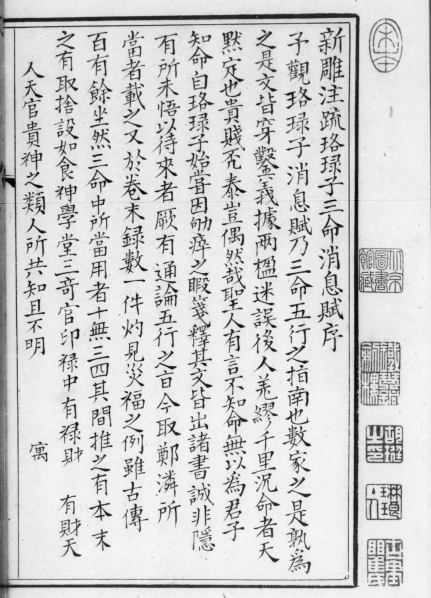 新雕注疏珞琭子三命消息賦序
子觀珞琭子消息賦乃三命五行之指南也數家之是孰為
之是文皆穿鑿義據兩楹迷誤後人差繆千里況命者天
黙定也貴賤否泰豈偶然哉聖人有言不知命無以為君子
知命自珞琭子始嘗因劬瘁之暇箋釋其文皆出諸書誠非隱
有所未悟以待來者厥有通論五行之旨今取鄭潾所
當者載之又於卷末録數一件灼見災福之例雖古傳
百有餘坐然三命中所當用者十無三四其間推之有本末
之有取捨設如食神學堂三竒官印禄中有禄財 有財天
人天官貴神之類人所共知且不明 寓